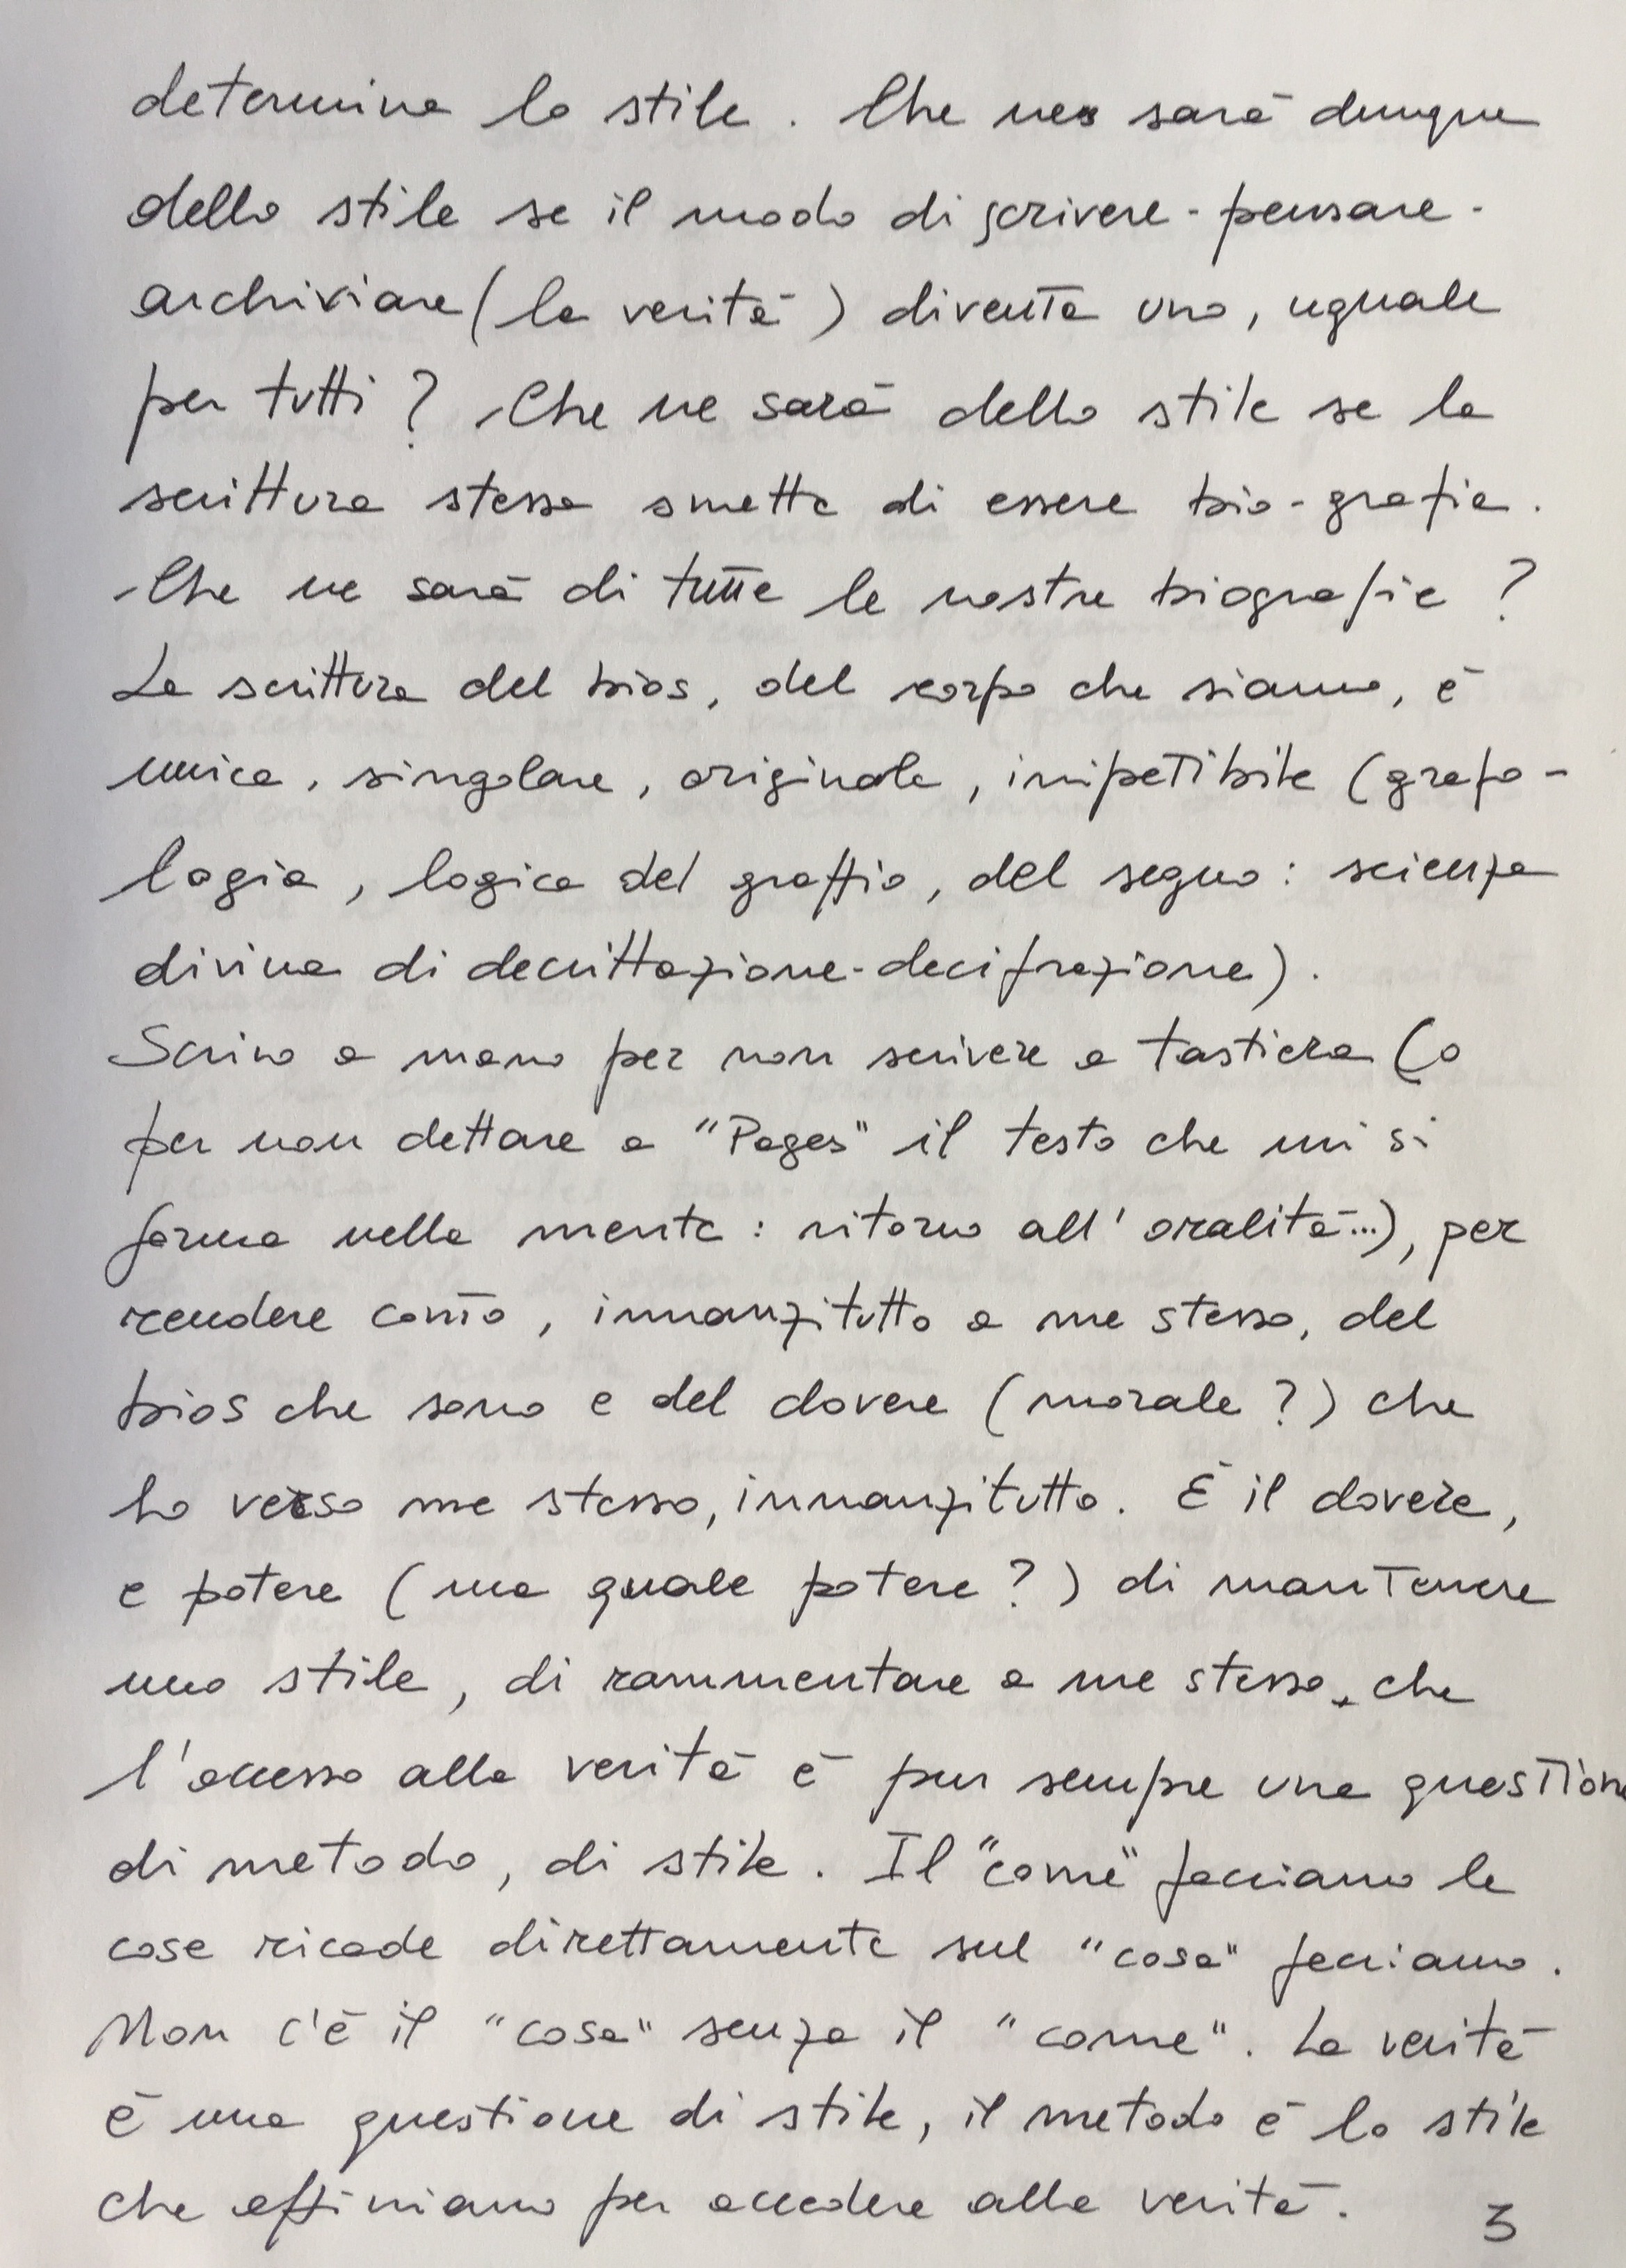 determina lo stile. Che ne sarà dunque
dello stile se il modo di scrivere-pensare-
archiviare (la verità) diventa uno, uguale
per tutti? Che ne sarà dello stile se la
scrittura stessa smette di essere bio-grafia.
Che ne sarà di tutte le nostre biografie?
La scrittura del bios, del corpo che siamo, è
unica, singolare, originale, irripetibile (grafo-
logia, logica del graffio, del segno: scienza
divina di decrittazione-decifrazione).
Scrivo a mano per non scrivere a tastiera (o
per non dettare a "Pages" il testo che mi si
forma nella mente: ritorno all'oralità...), per
rendere conto, innanzitutto a me stesso, del
bios che sono e del dovere (morale?) che
ho verso me stesso, innanzitutto. È il dovere,
e potere (ma quale potere?) di mantenere
uno stile, di rammentare a me stesso, che
l'accesso alla verità è pur sempre una questione
di metodo, di stile. Il "come" facciamo le
cose ricade direttamente sul "cosa" facciamo.
Non c'è il "cosa" senza il "come". La verità
è una questione di stile, il metodo è lo stile
che affiniamo per accedere alla verità.
3